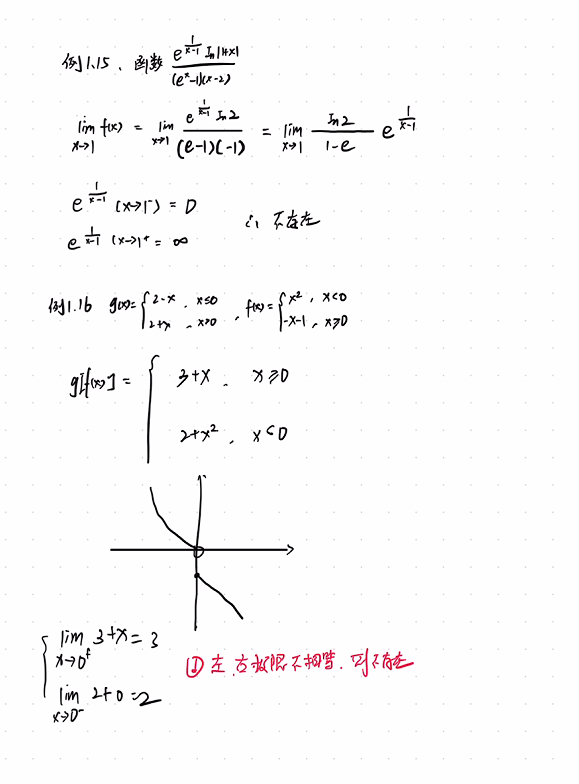 例1.15、函数 \frac{e^{\frac{1}{x-1}} In|1+x|}{(e^x-1)(x-2)}
\lim_{x→1} f(x) = \lim_{x→1} \frac{e^{\frac{1}{x-1}} In2}{(e-1)(-1)} = \lim_{x→1} \frac{In2}{1-e} e^{\frac{1}{x-1}}
e^{\frac{1}{x-1}} (x→1⁻) = 0
e^{\frac{1}{x-1}} (x→1⁺ = ∞
∴ 不存在
例1.16 g(x)= { 2-x , x≤0 ; 2+x , x>0 , f(x)= { x² , x<0 ; -x-1 , x≥0
g[f(x)] = {
3+x , x≥0
2+x² , x<0
{ \lim_{x→0⁺} 3+x = 3
\lim_{x→0⁻} 2+0=2
① 左.右极限不相等.即不存在